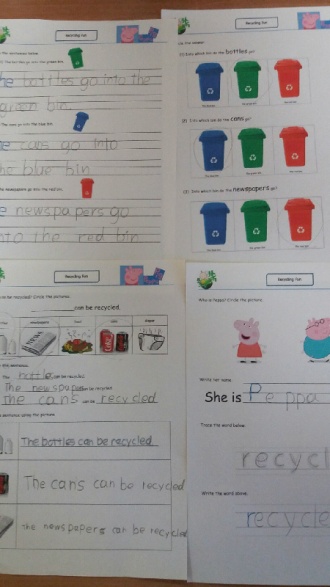 Reading Fun
The bottles go into the green bin.
he bottles go into the
green bin.
e cans go into
the blue bin
newspapers go into the red bin.
e newspapers go
nto the red bin
Reading Fun
(1) Into which bin do the bottles go?
(2) Into which bin do the cans go?
(3) Into which bin do the newspapers go?
Reading Fun
be recycled? Circle the pictures.
can be recycled.
newspapers
food
cans
The bottles can be recycled.
The newspapers can be recycled.
the cans can be recycled
sentence using the picture.
The bottles can be recycled
The cans can be recycled
the newspapers can be recycled
Reading Fun
Who is Peppa? Circle the picture.
Write her name.
She is Peppa
Trace the word below.
recycl
Write the word above.
recycle